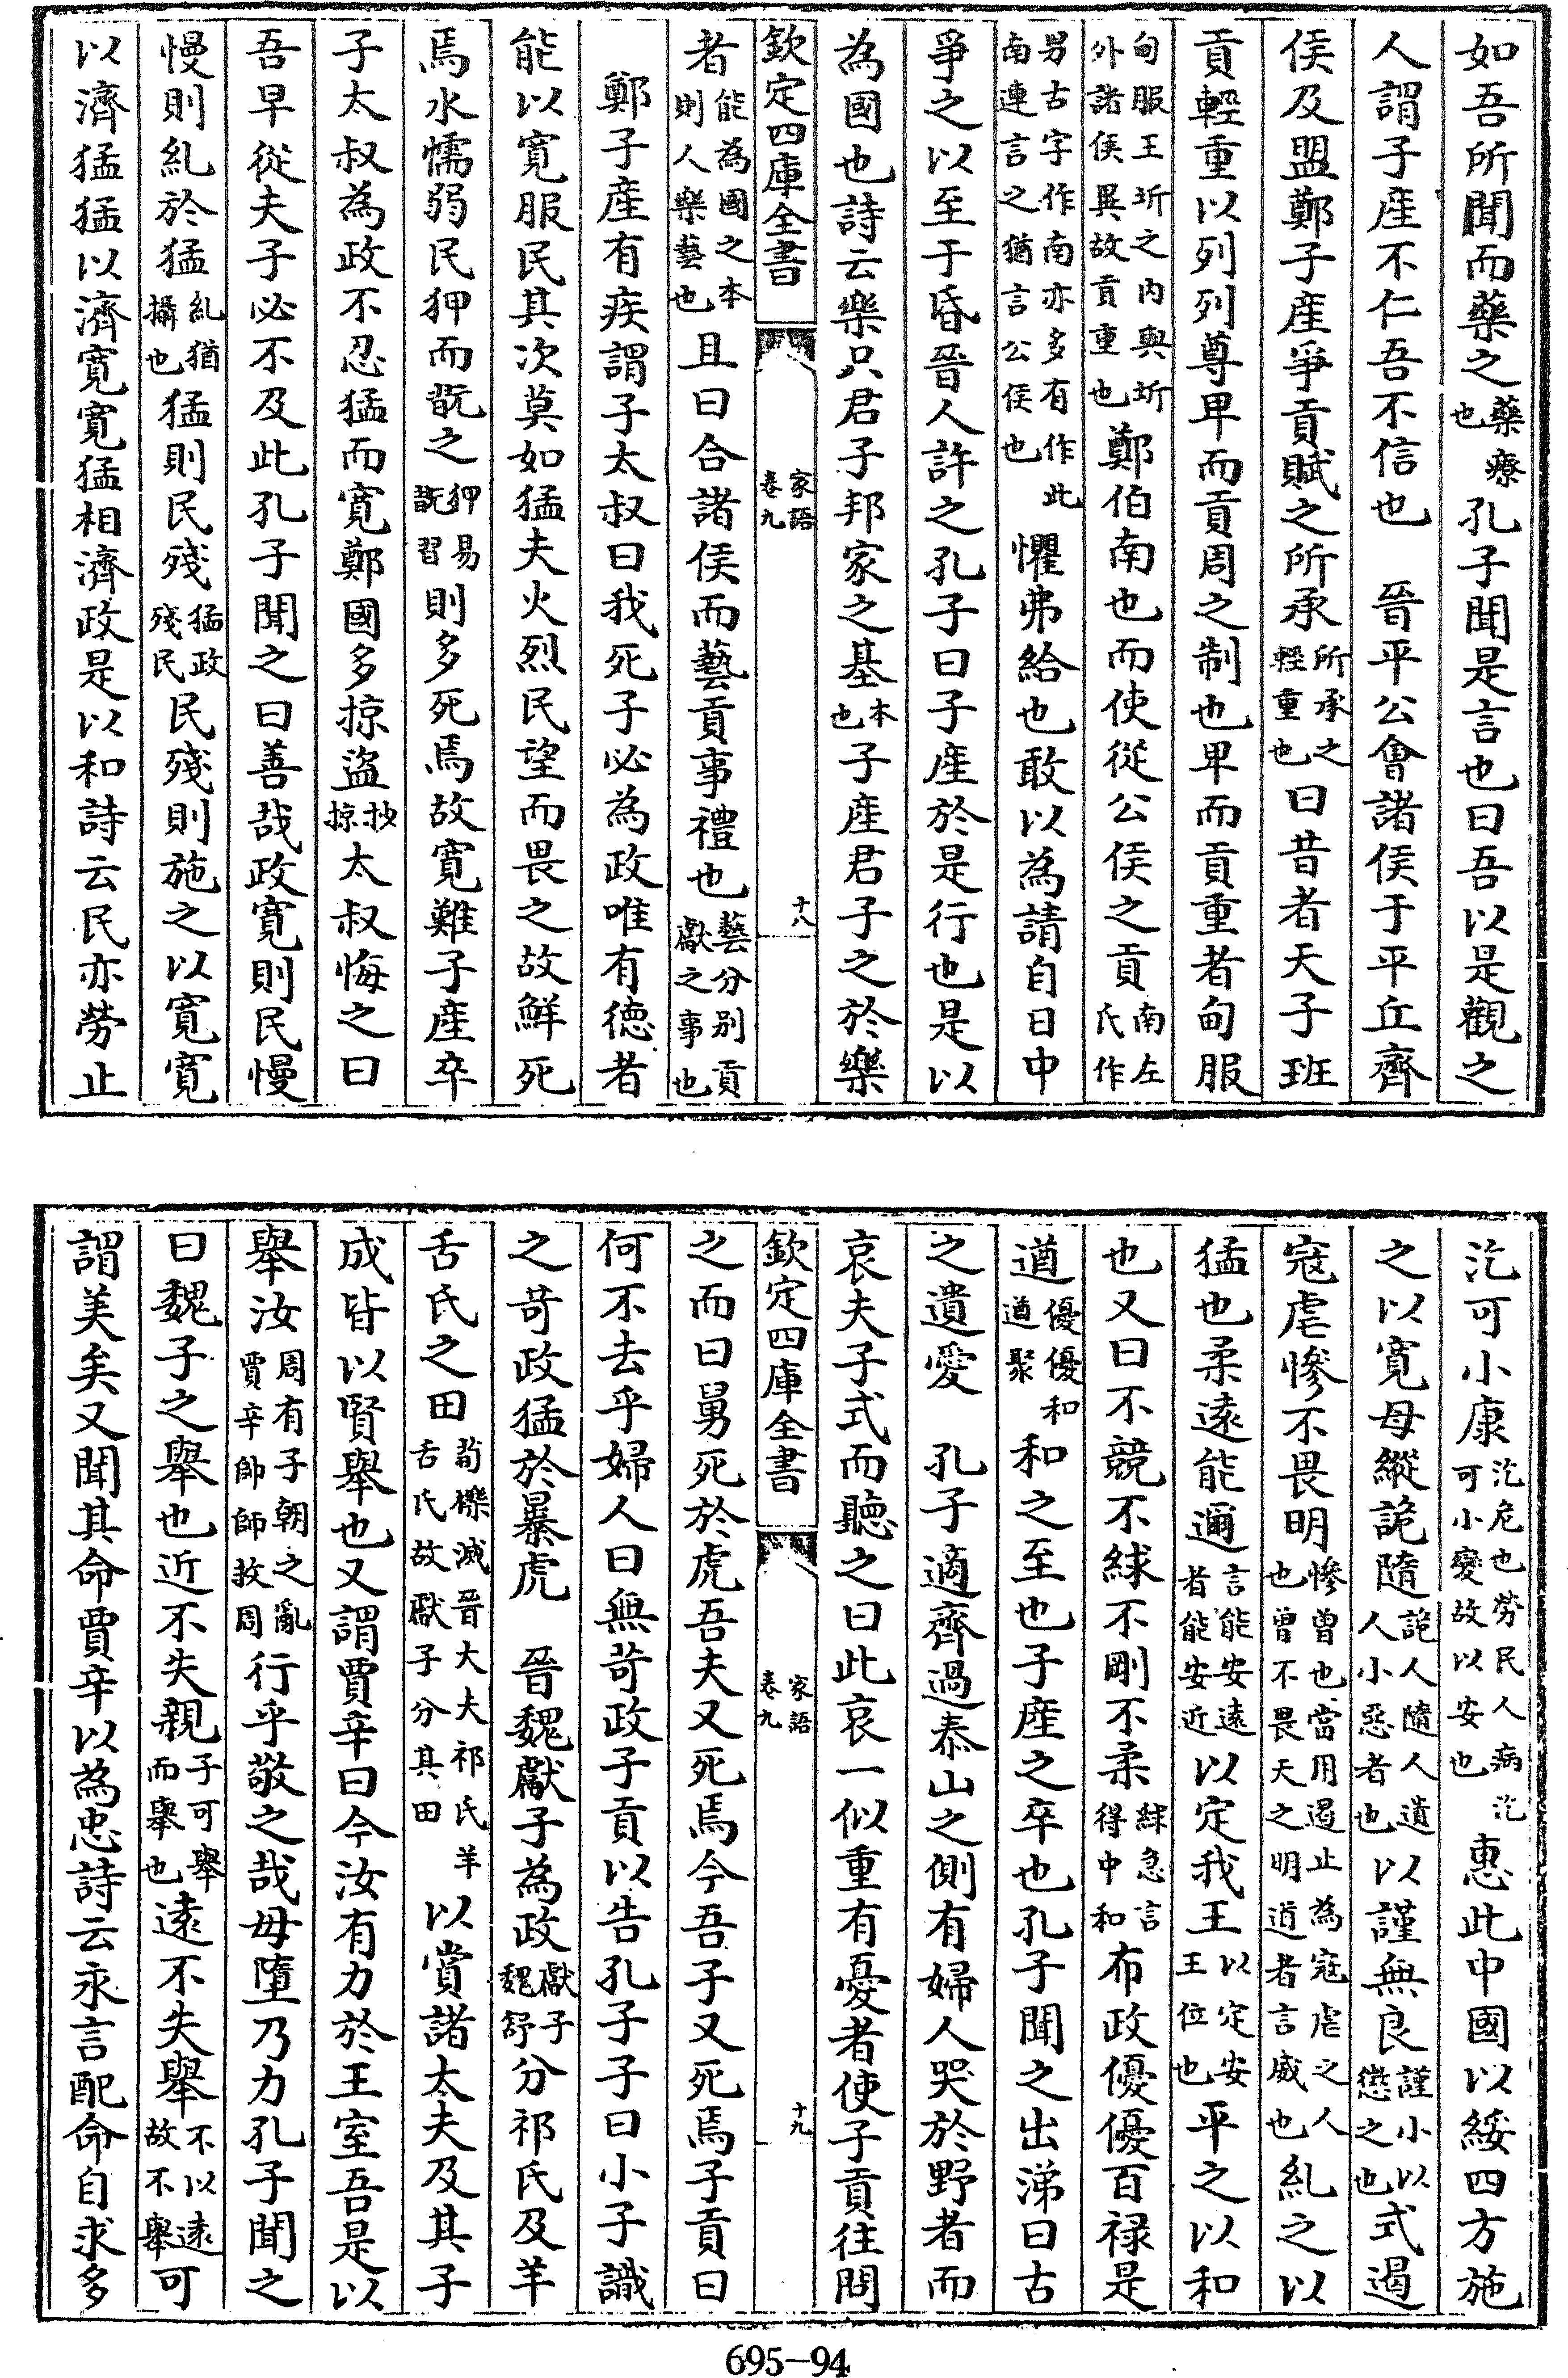 如吾所聞而藥之藥療也孔子聞是言也曰吾以是觀之
人謂子產不仁吾不信也　晉平公會諸侯于平丘齊
侯及盟鄭子產爭貢賦之所承所承之輕重也曰昔者天子班
貢輕重以列列尊卑而貢周之制也卑而貢重者甸服
甸服王圻之內與圻外諸侯異故貢重也鄭伯南也而使從公侯之貢南左氏作
男古字作南亦多有作此南連言之猶言公侯也懼弗給也敢以為請自日中
爭之以至于昏晉人許之孔子曰子產於是行也是以
為國也詩云樂只君子邦家之基本也子產君子之於樂
欽定四庫全書　家語卷九　十八
者能為國之本則人樂藝也且曰合諸侯而藝貢事禮也藝分別貢獻之事也
鄭子產有疾謂子太叔曰我死子必為政唯有德者
能以寬服民其次莫如猛夫火烈民望而畏之故鮮死
焉水懦弱民狎而翫之狎易翫習則多死焉故寬難子產卒
子太叔為政不忍猛而寬鄭國多掠盜抄掠太叔悔之曰
吾早從夫子必不及此孔子聞之曰善哉政寬則民慢
慢則糺於猛糺猶攝也猛則民殘猛政殘民民殘則施之以寬寬
以濟猛猛以濟寬寬猛相濟政是以和詩云民亦勞止
汔可小康汔危也勞民人病汔可小變故以安也惠此中國以綏四方施
之以寬毋縱詭隨詭人隨人遺人小惡者也以謹無良謹小以懲之也式遏
寇虐慘不畏明慘曾也當用遏止為寇虐之人也曾不畏天之明道者言威也糺之以
猛也柔遠能邇言能安遠者能安近以定我王以定安王位也平之以和
也又曰不競不絿不剛不柔絿急言得中和布政優優百祿是
遒優優和遒聚和之至也子產之卒也孔子聞之出涕曰古
之遺愛　孔子適齊過泰山之側有婦人哭於野者而
哀夫子式而聽之曰此哀一似重有憂者使子貢往問
欽定四庫全書　家語卷九　十九
之而曰舅死於虎吾夫又死焉今吾子又死焉子貢曰
何不去乎婦人曰無苛政子貢以告孔子子曰小子識
之苛政猛於暴虎　晉魏獻子為政獻子魏舒分祁氏及羊
舌氏之田荀櫟滅晉大夫祁氏羊舌氏故獻子分其田以賞諸大夫及其子
成皆以賢舉也又謂賈辛曰今汝有力於王室吾是以
舉汝周有子朝之亂賈辛帥師救周行乎敬之哉毋墮乃力孔子聞之
曰魏子之舉也近不失親子可舉而舉也遠不失舉不以遠故不舉可
謂美矣又聞其命賈辛以為忠詩云永言配命自求多
695-94